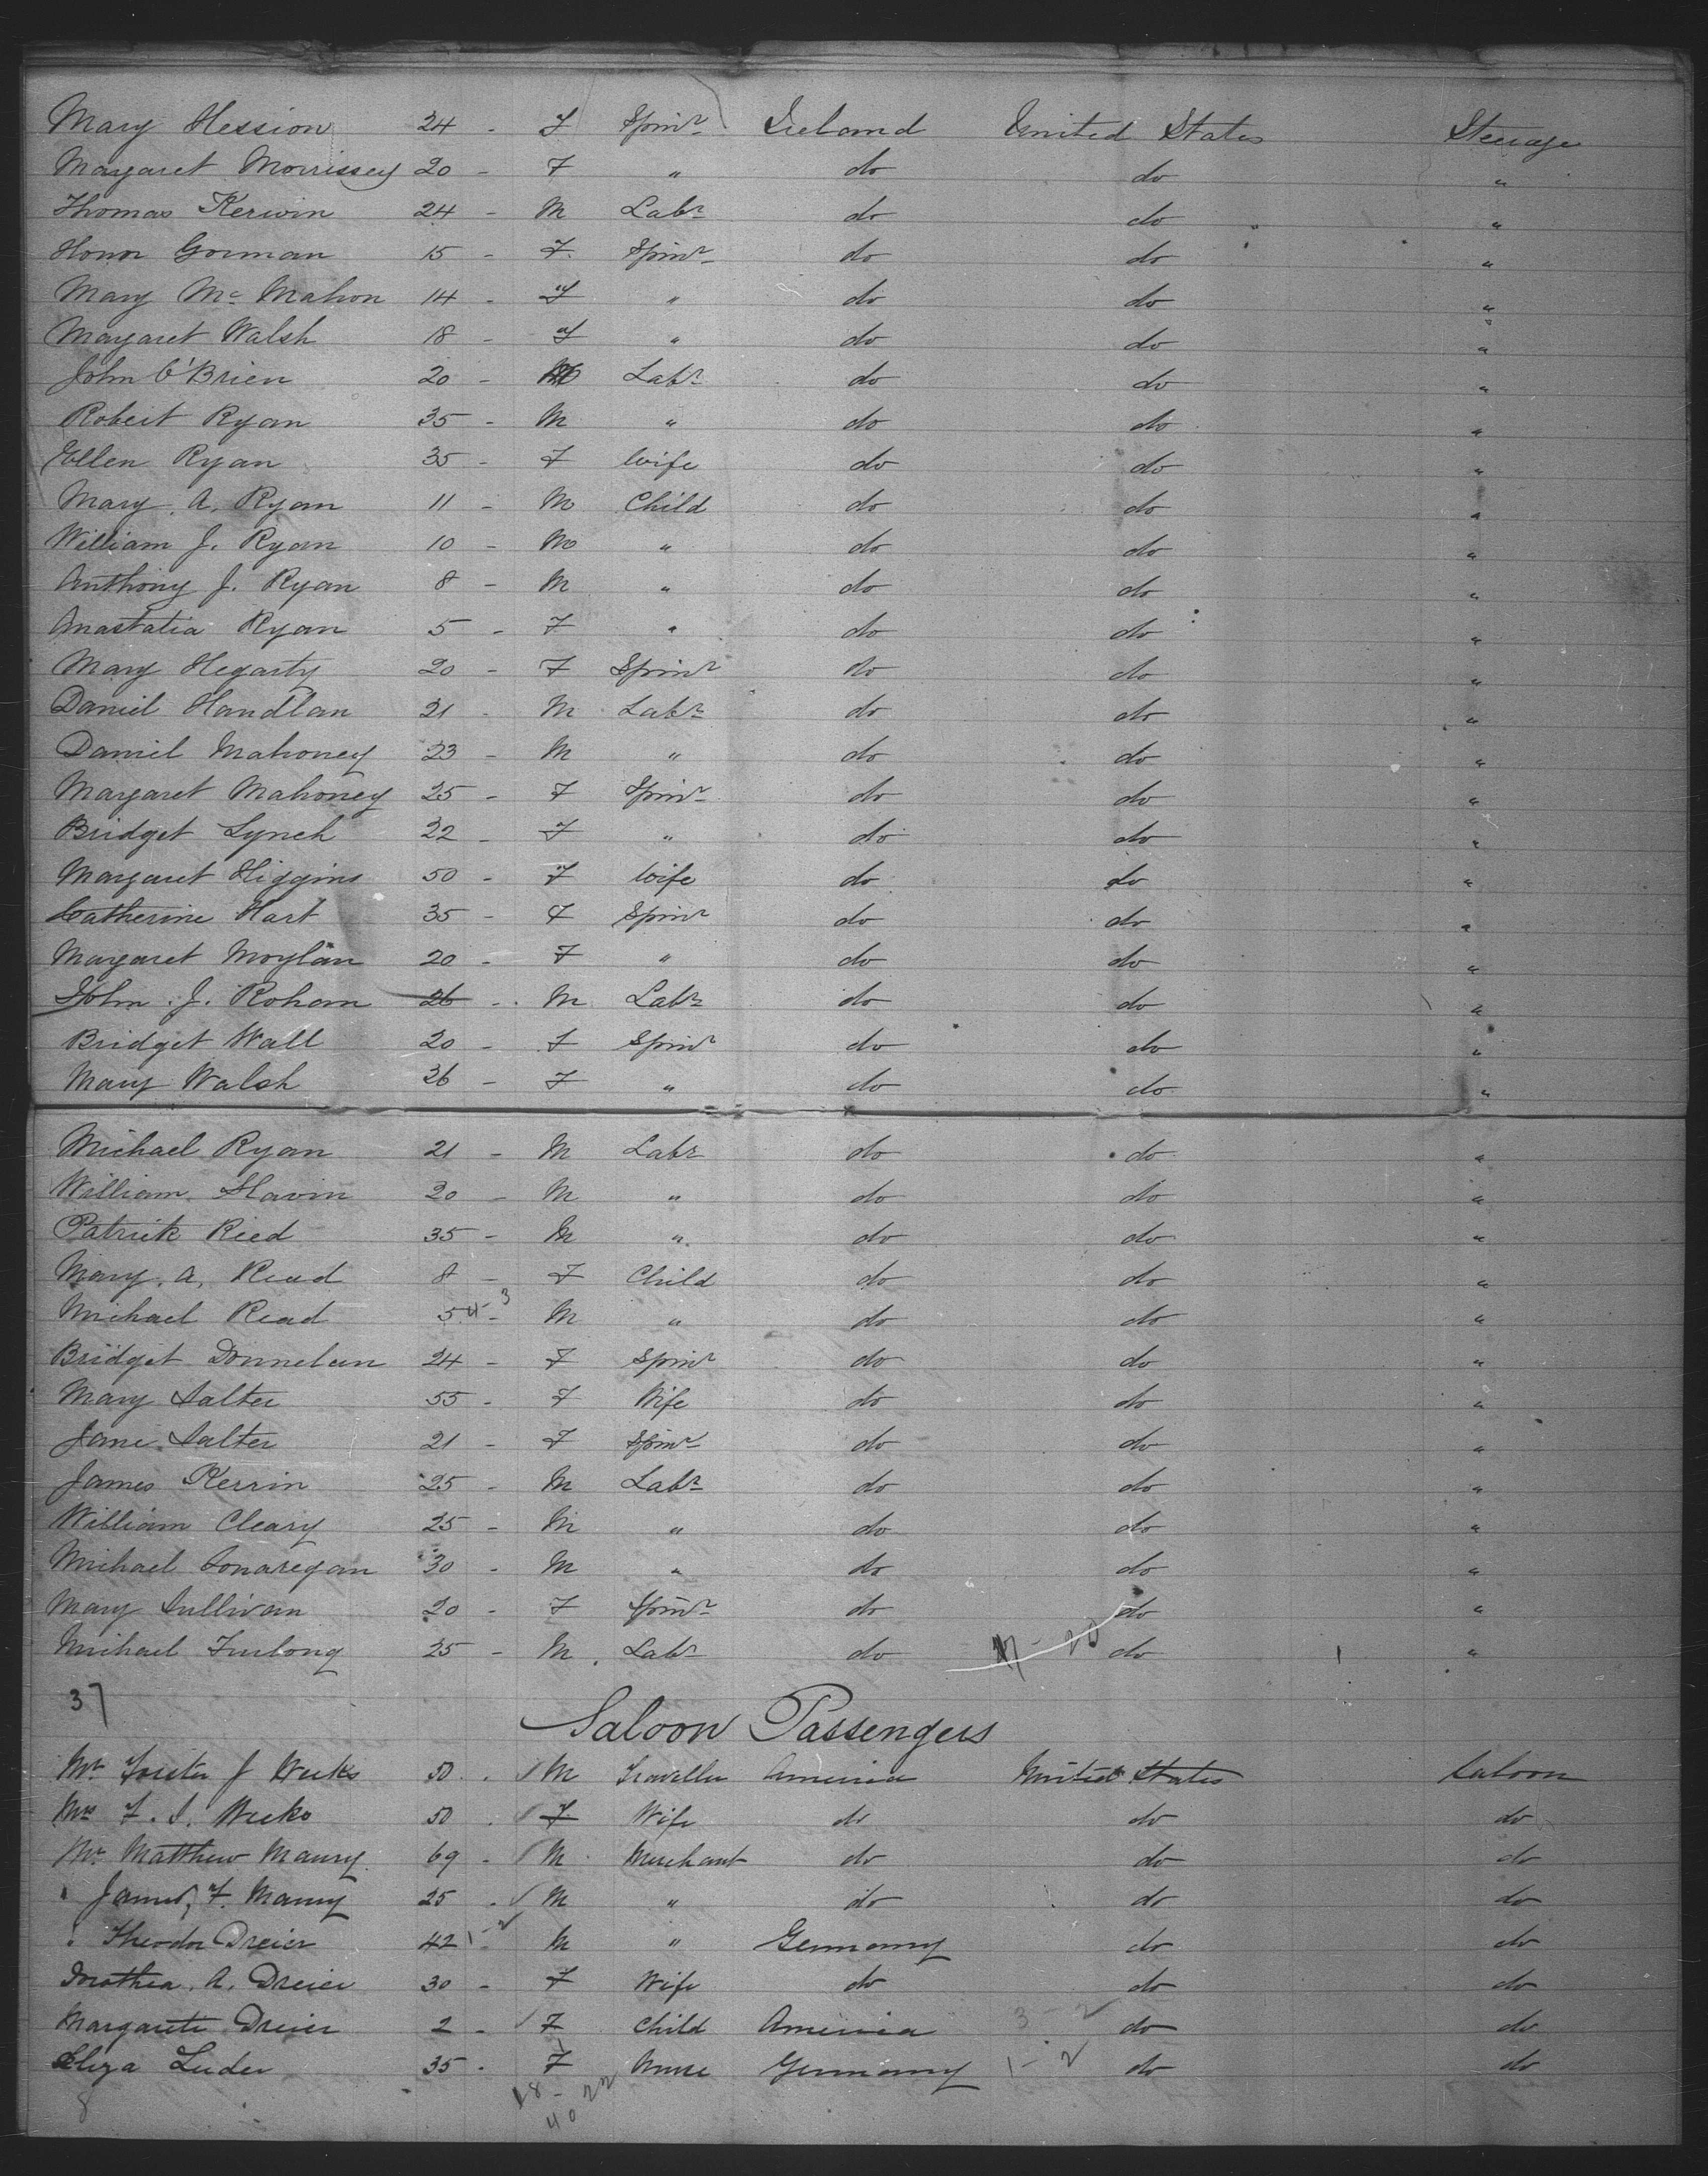 Mary Hession 24 - F Spinr Ireland United States Steerage
Margaret Morrissey 20 - F " do do "
Thomas Kerwin 24 - M Labr do do "
Honor Gorman 15 - F. Spinr do do "
Mary Mc Mahon 14 - F " do do "
Margaret Walsh 18 - F " do do "
John O'Brien 20 - M Labr do do "
Robert Ryan 35 - M " do do "
Ellen Ryan 35 - F Wife do do "
Mary A. Ryan 11 - M Child do do "
William J. Ryan 10 - M " do do "
Anthony J. Ryan 8 - M " do do "
Anastatia Ryan 5 - F " do do "
Mary Hegarty 20 - F Spinr do do "
Daniel Handlan 21 - M Labr do do "
Daniel Mahoney 23 - M " do do "
Margaret Mahoney 25 - F Spinr do do "
Bridget Lynch 22 - F " do do "
Margaret Higgins 50 - F Wife do do "
Catherine Hart 35 - F Spinr do do "
Margaret Moylan 20 - F " do do "
John J. Roham 26 - M Labr do do "
Bridget Wall 20 - F Spinr do do "
Mary Walsh 26 - F " do do "
Michael Ryan 21 - M Labr do do "
William Slavin 20 - M " do do "
Patrick Reed 35 - M " do do "
Mary A. Read 8 - F Child do do "
Michael Read 5 4-3 - M " do do "
Bridget Donnelan 24 - F Spinr do do "
Mary Salter 55 - F Wife do do "
Jane Salter 21 - F Spinr do do "
James Kerrin 25 - M Labr do do "
William Cleary 25 - M " do do "
Michael Lonaregan 30 - M " do do "
Mary Sullivan 20 - F Spinr do do "
Michael Furlong 25 - M Labr do do "
37
Saloon Passengers
Mr J Weeks 50 - M Traveller America United States Saloon
Mrs F. J. Weeks 50 - F Wife do do do
Mr Matthew Maury 69 - M Merchant do do do
" James F. Maury 25 - M " do do do
" Theodor Dreier 42 1-2 M " Germany do do
Dorothea A. Dreier 30 - F Wife do do do
Margarete Dreier 2 - F Child America 3-2 do do
Eliza Luder 35 - F Nurse Germany 1-2 do do
8 18-22
40